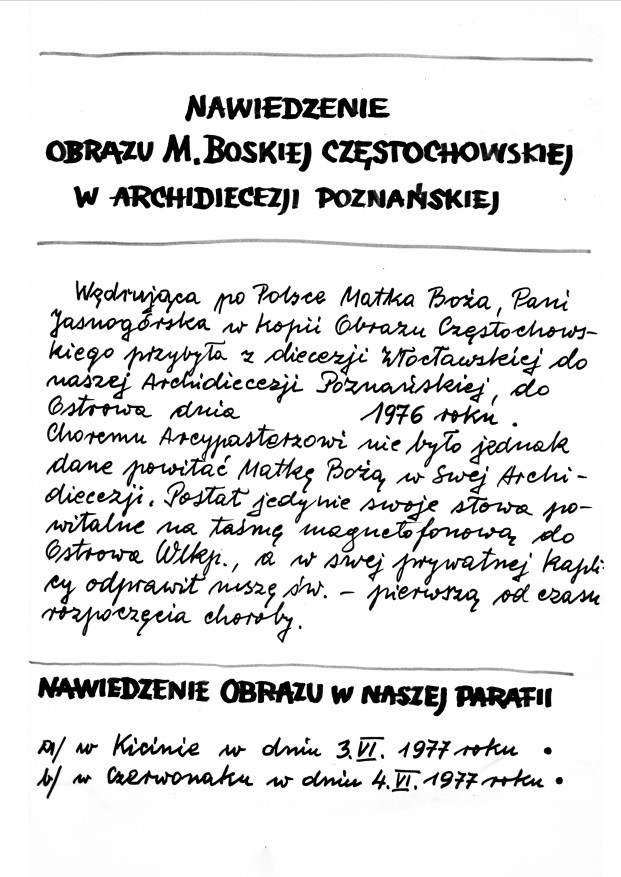 NAWIEDZENIE
OBRAZU M. BOSKIEJ CZĘSTOCHOWSKIEJ
W ARCHIDIECEZJI POZNAŃSKIEJ
Wędrująca po Polsce Matka Boża, Pani
Jasnogórska w kopii Obrazu Częstochows-
kiego przybyła z diecezji Włocławskiej do
naszej Archidiecezji Poznańskiej, do
Ostrowa dnia 1976 roku.
Choremu Arcypasterzowi nie było jednak
dane powitać Matkę Bożą w Swej Archi-
diecezji. Posłał jedynie swoje słowa po-
witalne na taśmę magnetofonową do
Ostrowa Wlkp., a w swej prywatnej kapli-
cy odprawił mszę św. - pierwszą od czasu
rozpoczęcia choroby.
NAWIEDZENIE OBRAZU W NASZEJ PARAFII
a/ w Kicinie w dniu 3.VI. 1977 roku .
b/ w Czerwonaku w dniu 4.VI. 1977 roku .